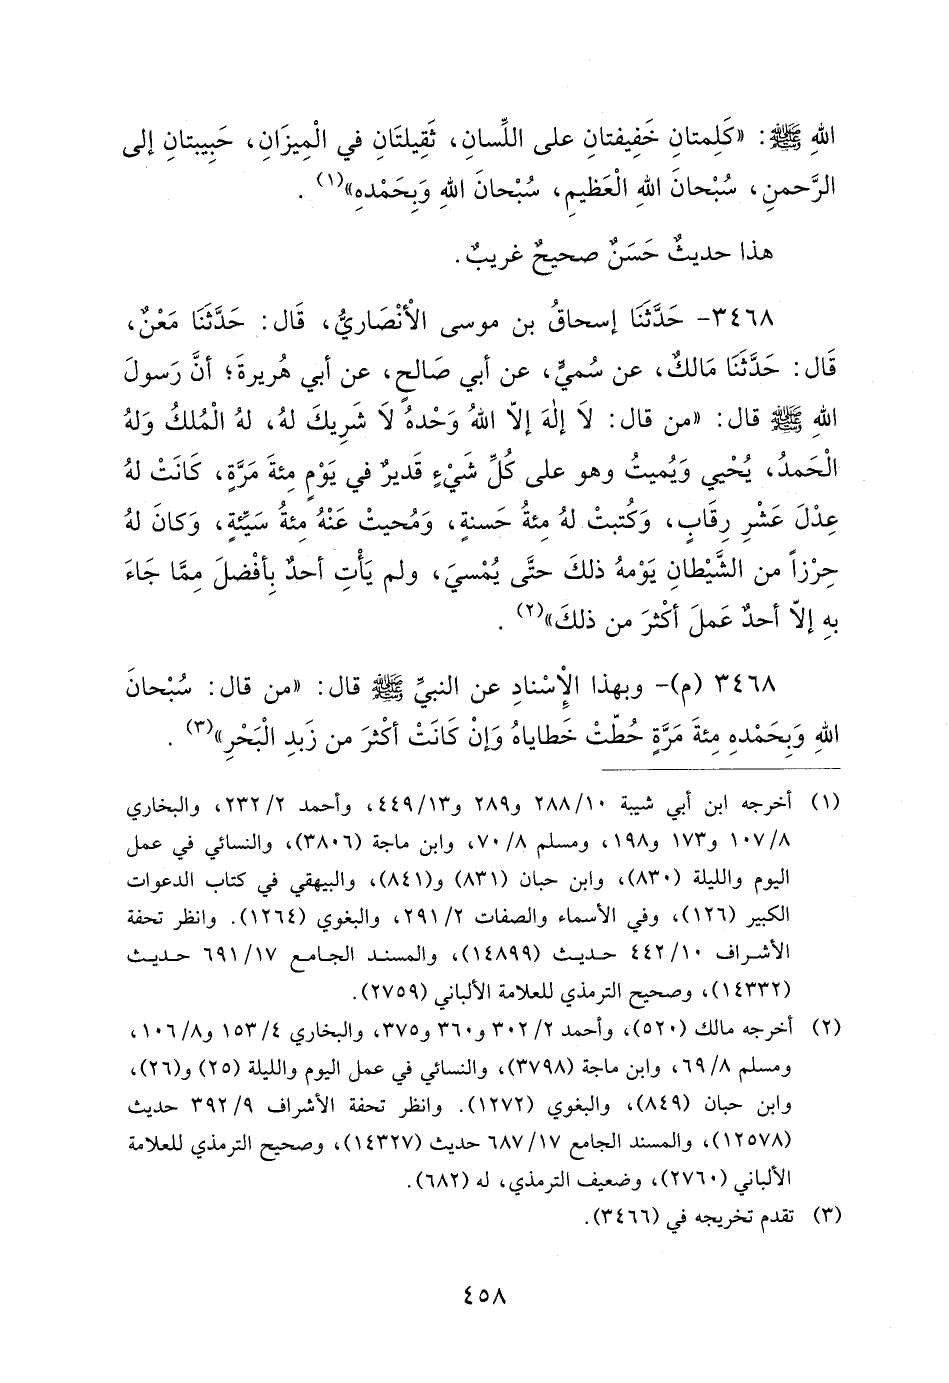 اللهِ ﷺ: «كَلِمتانِ خَفِيفتانِ على اللِّسانِ، ثَقِيلتَانِ في الْمِيزَانِ، حَبِيبتانِ إلى
الرَّحمنِ، سُبْحانَ اللهِ الْعَظيمِ، سُبْحانَ اللهِ وَبِحَمْدهِ»(١) .
هذا حديثٌ حَسَنٌ صحيحٌ غريبٌ.
٣٤٦٨- حَدَّثَنَا إسحاقُ بن موسى الأنْصَاريُّ، قَال: حَدَّثَنَا مَعْنٌ،
قَال: حَدَّثَنَا مَالكٌ، عن سُميٍّ، عن أبي صَالحٍ، عن أبي هُريرةَ؛ أنَّ رَسولَ
اللهِ ﷺ قال: «من قال: لاَ إلٰهَ إلاّ اللهُ وَحْدهُ لاَ شَرِيكَ لهُ، لهُ الْمُلكُ وَلهُ
الْحَمدُ، يُحْيي وَيُميتُ وهو على كُلِّ شَيْءٍ قَديرٌ في يَوْمٍ مِئةَ مَرَّةٍ، كَانَتْ لهُ
عِدْلَ عَشْرِ رِقَابٍ، وَكُتبتْ لهُ مِئةُ حَسنةٍ، وَمُحيتْ عَنْهُ مِئةُ سَيِّئةٍ، وَكانَ لهُ
حِرْزاً من الشَّيْطانِ يَوْمهُ ذلكَ حتَّى يُمْسيَ، ولم يَأْتِ أحدٌ بِأفْضلَ مِمَّا جَاءَ
بهِ إلاّ أحدٌ عَملَ أكْثرَ من ذلكَ»(٢) .
٣٤٦٨ (م)- وبهذا الإسْنادِ عن النبيِّ ﷺ قال: «من قال: سُبْحانَ
اللهِ وَبِحَمْدهِ مِئةَ مَرَّةٍ حُطّتْ خَطاياهُ وَإنْ كَانَتْ أكْثرَ من زَبدِ الْبَحْرِ»(٣) .
(١) أخرجه ابن أبي شيبة ٢٨٨/١٠ و٢٨٩ و٤٤٩/١٣، وأحمد ٢٣٢/٢، والبخاري
١٠٧/٨ و١٧٣ و١٩٨، ومسلم ٧٠/٨، وابن ماجة (٣٨٠٦)، والنسائي في عمل
اليوم والليلة (٨٣٠)، وابن حبان (٨٣١) و(٨٤١)، والبيهقي في كتاب الدعوات
الكبير (١٢٦)، وفي الأسماء والصفات ٢٩١/٢، والبغوي (١٢٦٤). وانظر تحفة
الأشراف ٤٤٢/١٠ حديث (١٤٨٩٩)، والمسند الجامع ٦٩١/١٧ حديث
(١٤٣٣٢)، وصحيح الترمذي للعلامة الألباني (٢٧٥٩).
(٢) أخرجه مالك (٥٢٠)، وأحمد ٣٠٢/٢ و٣٦٠ و٣٧٥، والبخاري ١٥٣/٤ و١٠٦/٨،
ومسلم ٦٩/٨، وابن ماجة (٣٧٩٨)، والنسائي في عمل اليوم والليلة (٢٥) و(٢٦)،
وابن حبان (٨٤٩)، والبغوي (١٢٧٢). وانظر تحفة الأشراف ٣٩٢/٩ حديث
(١٢٥٧٨)، والمسند الجامع ٦٨٧/١٧ حديث (١٤٣٢٧)، وصحيح الترمذي للعلامة
الألباني (٢٧٦٠)، وضعيف الترمذي، له (٦٨٢).
(٣) تقدم تخريجه في (٣٤٦٦).
٤٥٨